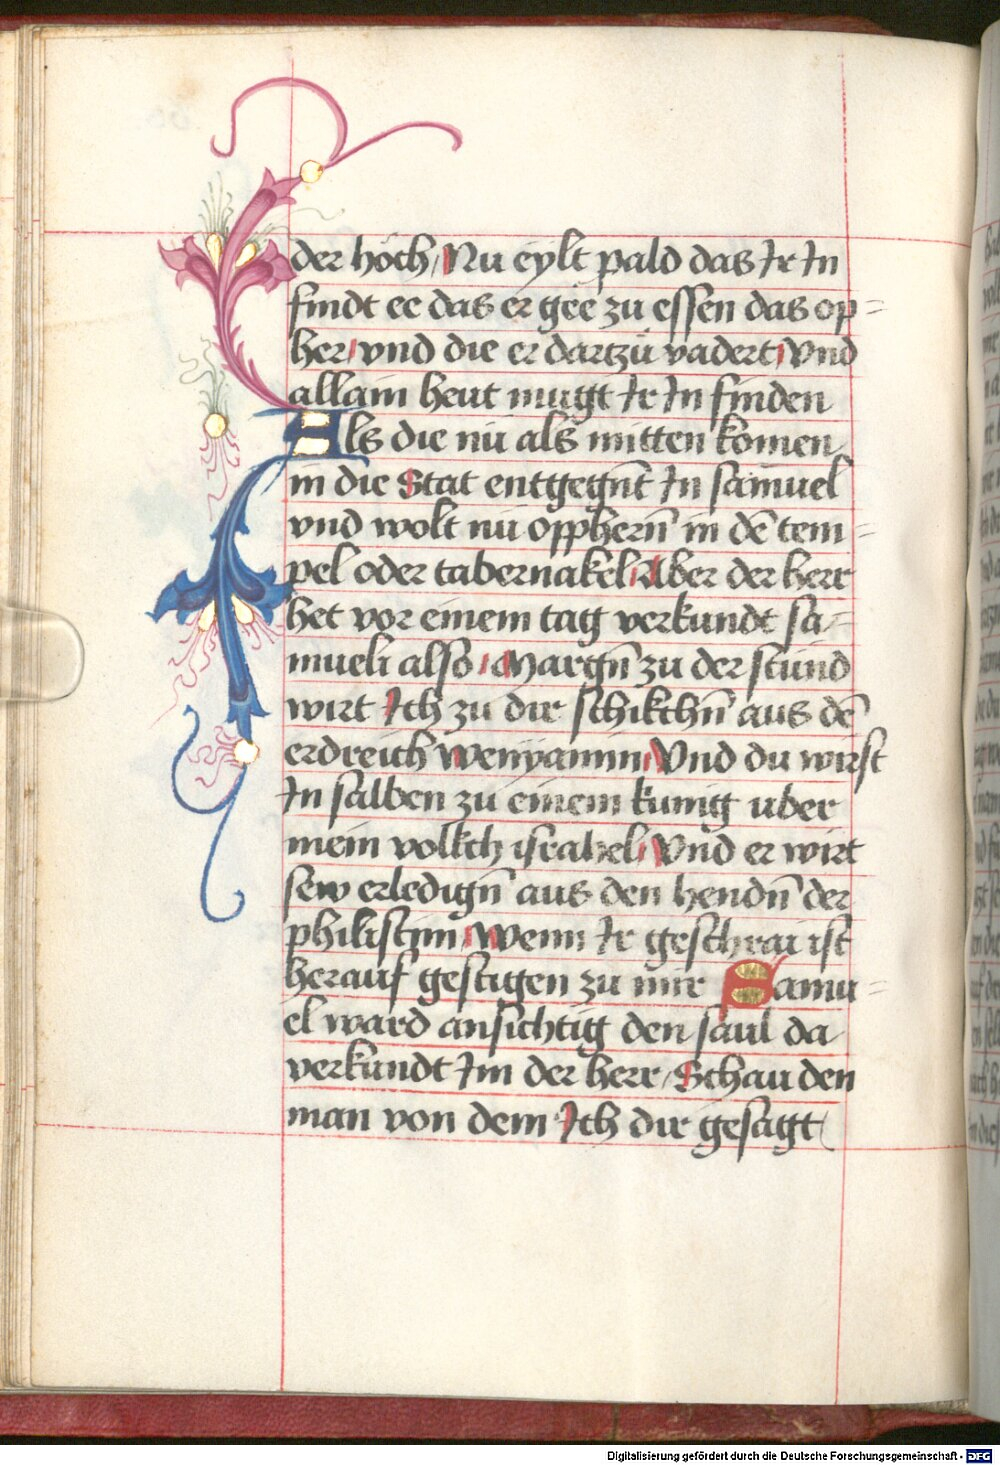 der höch, Nu eylt pald das Ir In
findt ee das er gee zu essen das op=
her, vnd die er dartzü vadert, Vnd
allain heut mugt Ir In finden
Als die nü als mitten komen
in die Stat entgegn̄t In samuel
vnd wolt nü opphern̄ in dē tem=
pel oder tabernakel, Aber der herr
het vor einem tag verkundt sa=
mueli also, Margn̄ zu der stund
wirt Ich zu dir schikchn̄ aus dē
erdreich Wenyamin, Vnd du wirst
In salben zu einem kunig uber
mein volkch israhel, Vnd er wirt
sew erledign̄ aus den hendn̄ der
philistijm, Wenn Ir geschrai ist
herauf gestigen zu mir Samu=
el ward ansichtig den saul da
verkundt Im der herr, Schau den
man von dem Ich dir gesagt
Digitalisierung gefördert durch die Deutsche Forschungsgemeinschaft - DFG